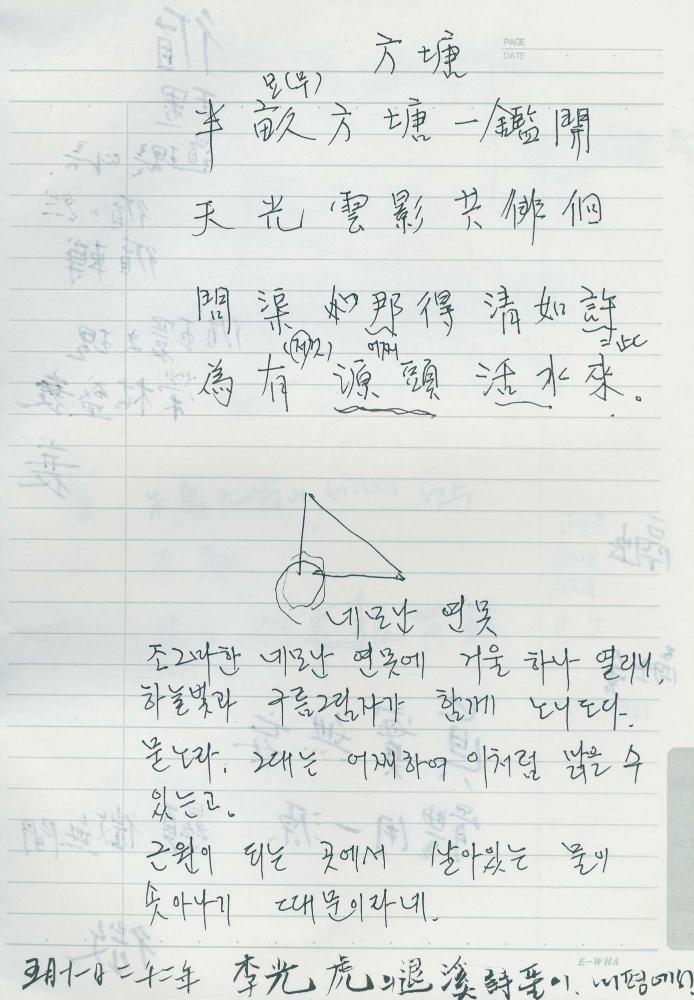 PAGE
DATE
方塘
묘(무)
半畝方塘一鑑開
天光雲影共俳徊
問渠如那得清如許
어찌
=此
為有源頭活水來.
네모난 연못
조그마한 네모난 연못에 거울 하나 열리니,
하늘빛과 구름그림자가 함께 노니도다.
묻노라. 그대는 어찌하여 이처럼 맑을 수
있는고.
근원이 되는 곳에서 살아있는 물이
솟아나기 때문이라네.
E-WHA
五月十一日 二十二年 李光虎의 退溪詩풀이. 내평에서